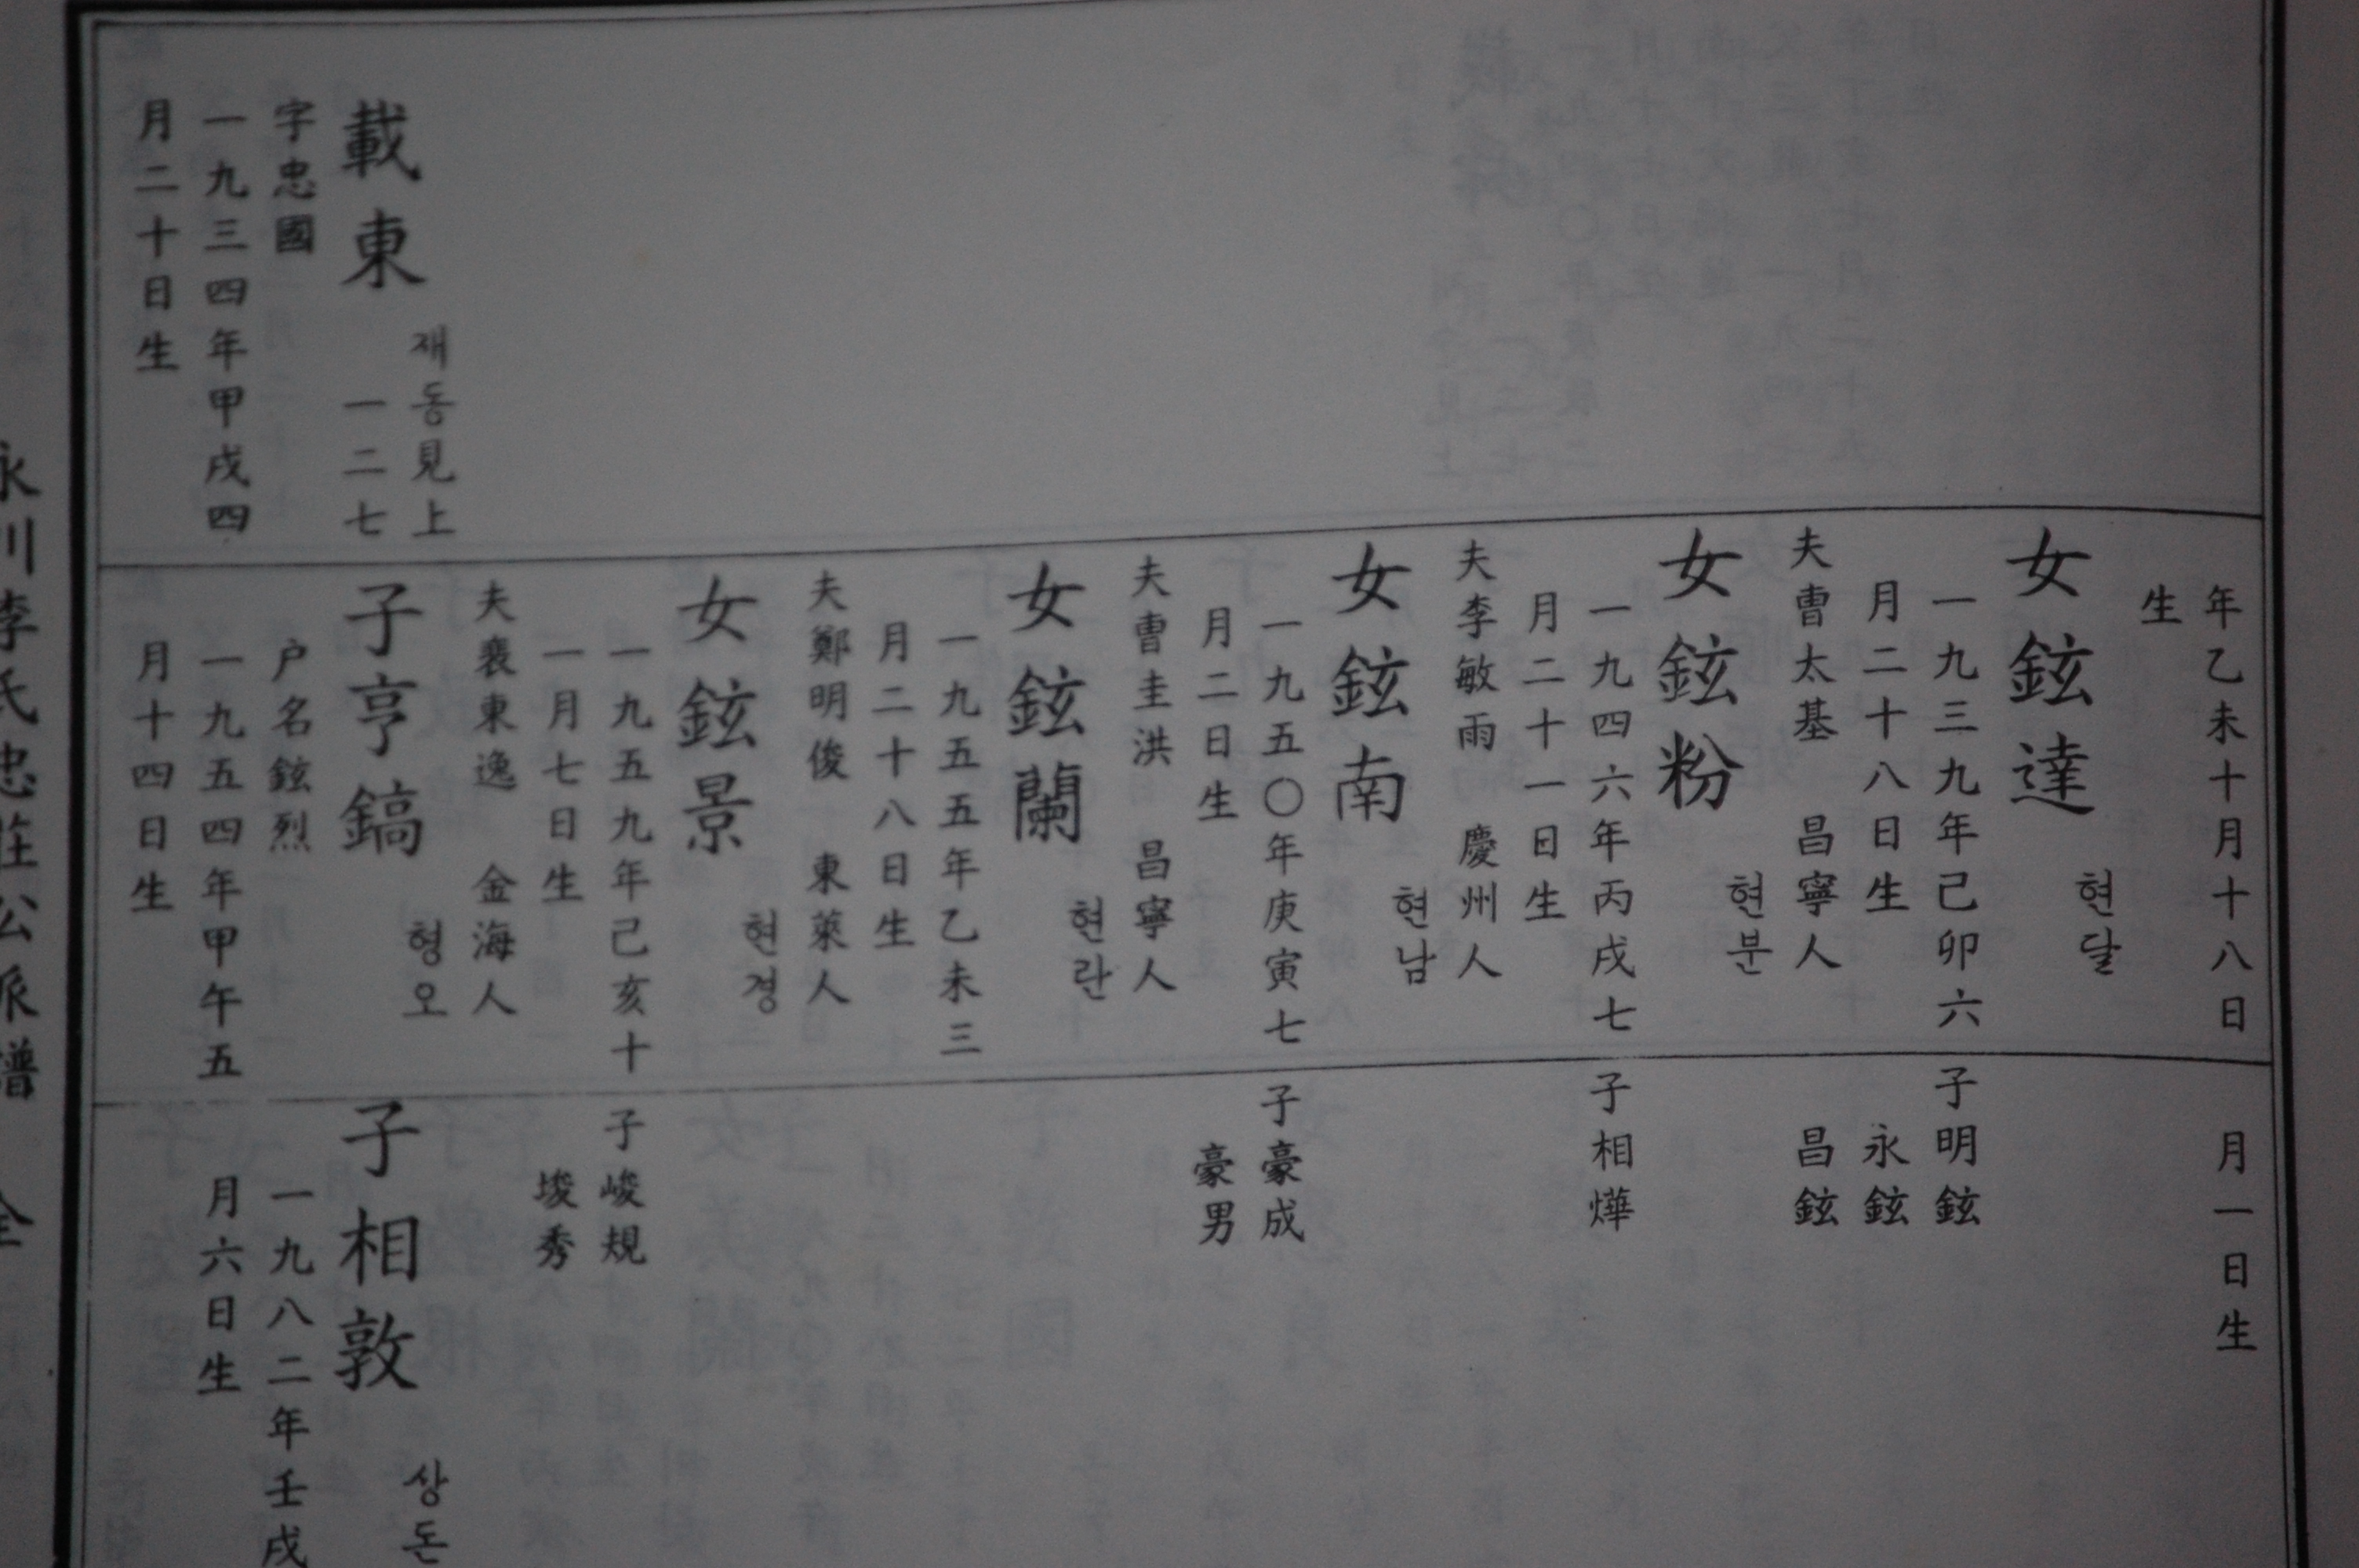 載東 재동見上
一二七
字忠國
一九三四年甲戌四
月二十日生
年乙未十月十八日
生
女鉉達 현달
一九三九年己卯六
月二十八日生
夫曺太基 昌寧人
女鉉粉 현분
一九四六年丙戌七
月二十一日生
夫李敏雨 慶州人
女鉉南 현남
一九五〇年庚寅七
月二日生
夫曺圭洪 昌寧人
女鉉蘭 현란
一九五五年乙未三
月二十八日生
夫鄭明俊 東萊人
女鉉景 현경
一九五九年己亥十
一月七日生
夫裵東逸 金海人
子亨鎬 형오
户名鉉烈
一九五四年甲午五
月十四日生
月一日生
子明鉉
永鉉
昌鉉
子相燁
子豪成
豪男
子峻規
埈秀
子相敦 상돈
一九八二年壬戌
月六日生
永川李氏忠莊公派譜 全